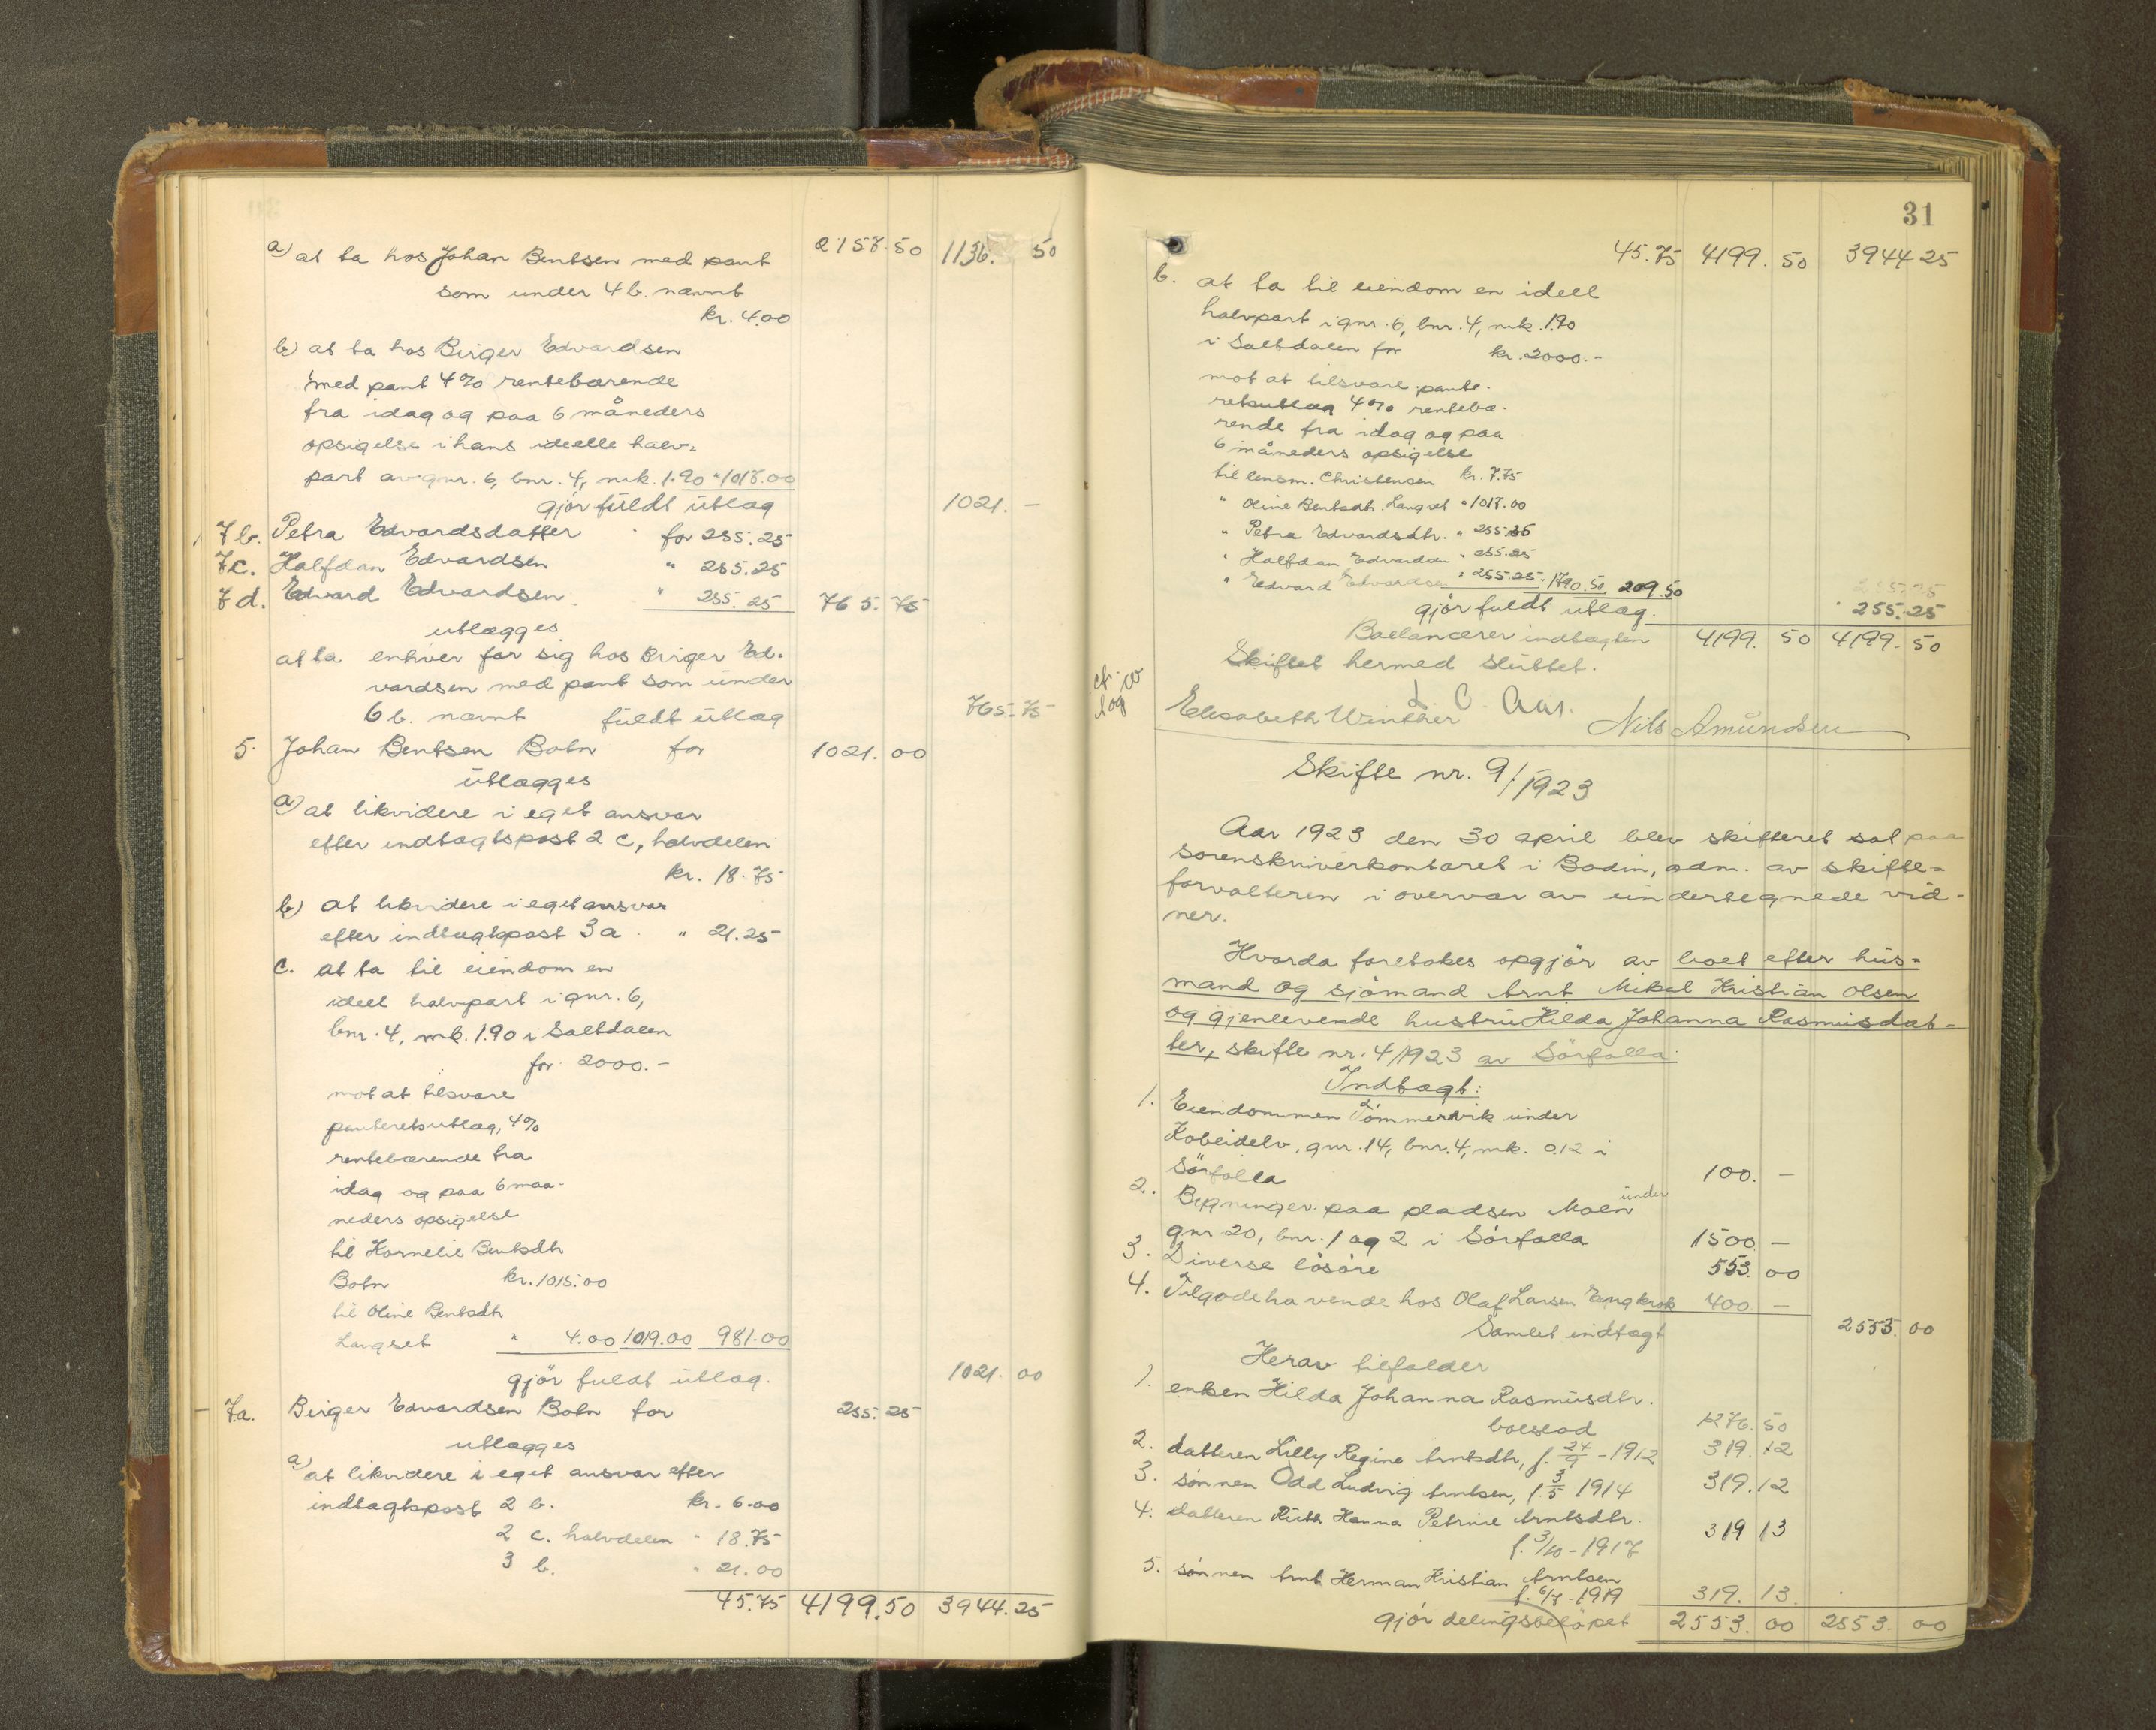 2157.50 1136. 50
a) at ta hos Johan Bentsen med pant
som under 4 b. nævnt
kr. 4.00
b) at ta hos Birger Edvardsen
med pant 4% rentebærende
fra idag og paa 6 måneders
opsigelse i hans ideelle halv-
part av gnr. 6, bnr. 4, mk. 1.90 " 1017.00
gjör fuldt utlæg 1021. —
7 b. Petra Edvardsdatter " for 255.25
7 c. Halfdan Edvardsen " 255.25
7 d. Edvard Edvardsen " 255.25 765.75
utlægges
at ta enhver for sig hos Birger Ed-
vardsen med pant som under
6 b. nævnt fuldt utlæg 765.75
5. Johan Bentsen Botn for 1021.00
utlægges
a) at likvidere i eget ansvar
efter indtægtspost 2 c, halvdelen
kr. 18.75
b) at likvidere i eget ansvar
efter indtægtspost 3 a. " 21.25
c. at ta til eiendom en
ideel halvpart i gnr. 6,
bnr. 4, mk. 1.90 i Saltdalen
for 2000.-
mot at tilsvare
panteretsutlæg, 4%
rentebærende fra
idag og paa 6 maa-
neders opsigelse
til Kornelie Bentsdtr
Botn kr. 1015.00
til Oline Bentsdtr
Langset " 4.00 1019.00 981.00
gjör fuldt utlæg. 1021.00
7a. Birger Edvardsen Botn for 255.25
utlægges
a) at likvidere i eget ansvar efter
indtægtspost 2 b. kr. 6.00
2 c. halvdelen " 18.75
3 b. " 21.00
45.75 4199.50 3944.25
31
45.75 4199.50 3944 25
b. at ta til eiendom en ideel
halvpart i gnr. 6, bnr. 4, mk. 1.90
i Saltdalen for kr. 2000.-
mot at tilsvare pante-
retsutlæg 4% renteba-
rende fra idag og paa
6 måneders opsigelse
til lensm. Christensen kr. 7.75
" Oline Bentsdtr. Langset " 1017.00
" Petra Edvardsdtr. " 255.25
" Halfdan Edvardsen " 255.25
" Edvard Edvardsen " 255.25 1790.50 209.50
gjör fuldt utlæg. 255.25
Ballancerer indtægten 4199.50 4199.50
Skiftet hermed sluttet.
L. C. Aas.
Elisabeth Winther Nils Amundsen
Skifte nr. 9/1923
Aar 1923 den 30 april blev skifteret sat paa
sorenskriverkontoret i Bodin, adm. av skifte-
forvalteren i overvær av undertegnede vid-
ner.
Hvorda foretokes opgjör av boet efter hus-
mand og sjömand Arnt Mikal Kristian Olsen
og gjenlevende hustru Hilda Johanna Rasmusdat-
ter, skifte nr. 4/1923 av Sörfolla.
Indtægt:
1. Eiendommen Tömmervik under
Kobbeidelv, gnr. 14, bnr. 4, mk. 0.12 i
Sörfolla 100. —
2. Bygninger paa pladsen Moen under
gnr. 20, bnr. 1 og 2 i Sörfolla 1500 —
3. Diverse lösöre 553.00
4. Tilgodehavende hos Olaf Larsen Engkrok 400 —
Samlet indtægt 2553.00
Herav tilfalder
1. enken Hilda Johanna Rasmusdtr.
boeslod 1276.50
2. datteren Lilly Regine Arntsdtr, f. 24/9 - 1912 319.12
3. sönnen Odd Ludvig Arntsen, f. 3/5 1914 319.12
4. datteren Ruth Hanna Petrine Arntsdtr.
f. 3/10 - 1917 319 13
5. sönnen Arnt Herman Kristian Arntsen
f. 6/7 - 1919 319.13.
gjör delingsbelöpet 2553.00 2553.00